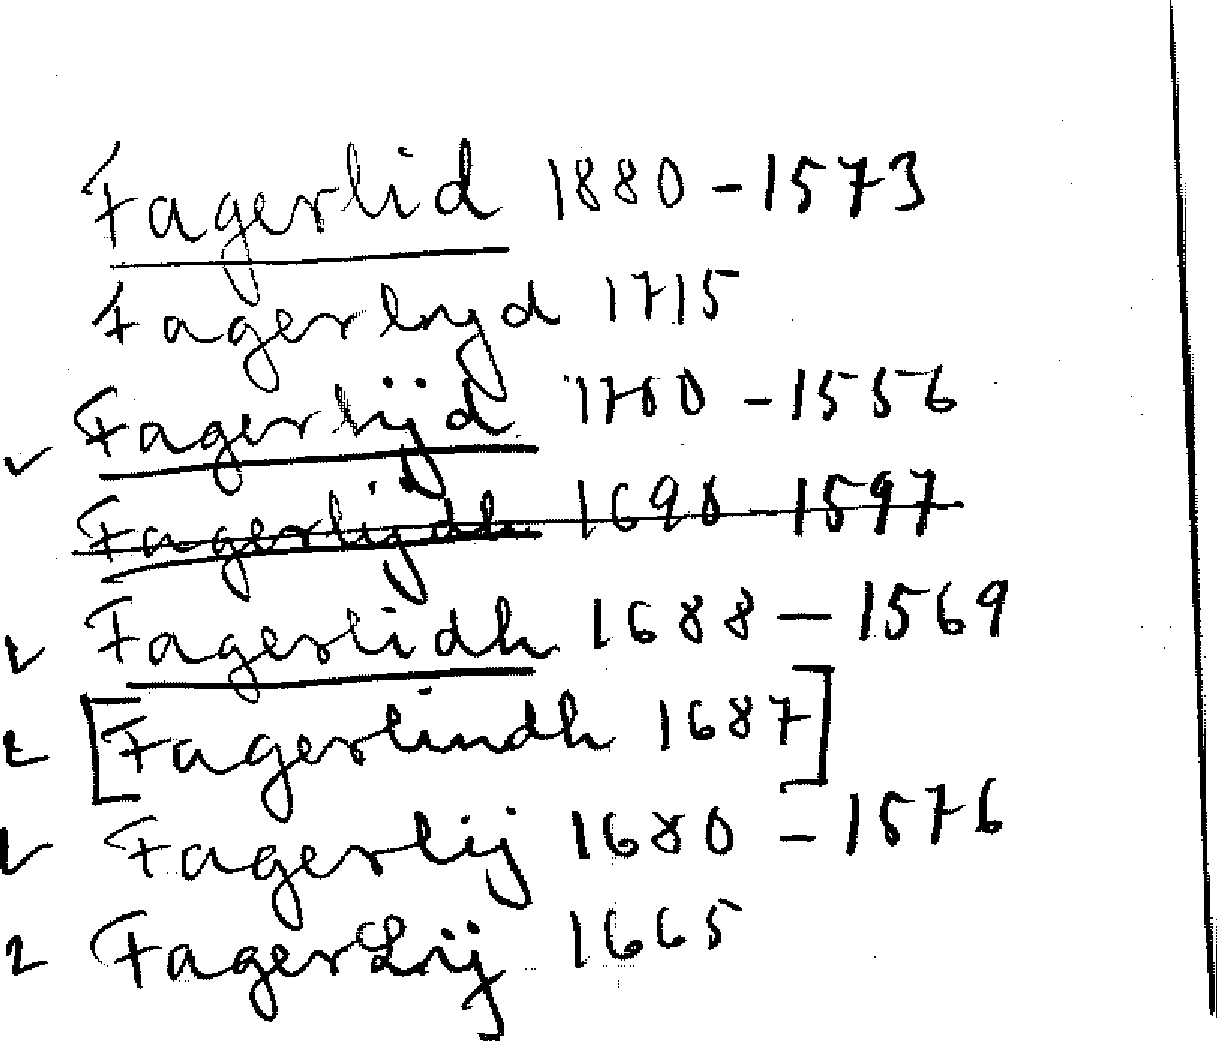 Fagerlid 1880 - 1573
Fagerlryd 1715
Fagerlijd 1700 - 1556
Fagerlijdh 1690 1597
Fagerlidh 1688 - 1569
[Fagerlindh 1687]
Fagerlij 1680 - 1576
FagerLrij 1665